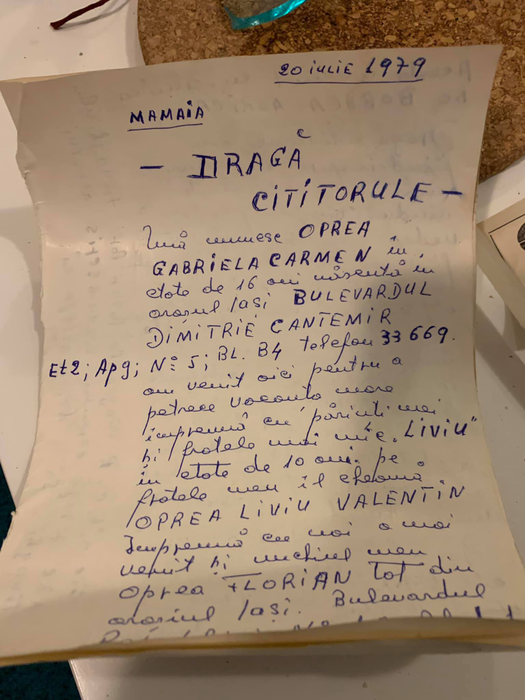 20 iulie 1979
MAMAIA
— DRAGĂ
CITITORULE —
Mă numesc OPREA
GABRIELA CARMEN în
etate de 16 ani născută în
orașul Iași BULEVARDUL
DIMITRIE CANTEMIR
Et2; Ap9; Nº 5; BL. B4 telefon 33669.
am venit aici pentru a
petrece vacanța mare
împreună cu părinți mei
și fratele mai mic "LIVIU"
în etate de 10 ani. pe
fratele meu îl cheamă
OPREA LIVIU VALENTIN
Împreună cu noi a mai
venit și unchiul meu
Oprea FLORIAN tot din
orașul Iași. Bulevardul